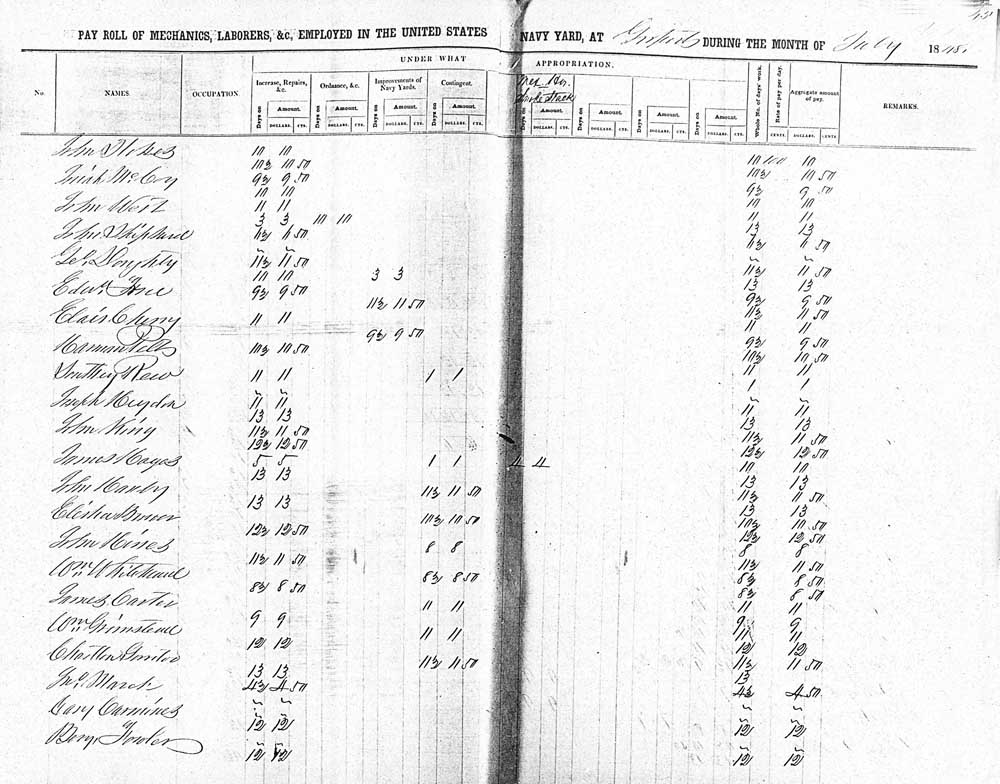 PAY ROLL OF MECHANICS, LABORERS, &c, EMPLOYED IN THE UNITED STATES NAVY YARD, AT Gosport DURING THE MONTH OF July 18
UNDER WHAT APPROPRIATION.
No. NAMES. OCCUPATION. Increase, Repairs, &c. Ordnance, &c. Improvements of Navy Yards. Contingent. Whole No. of days' work. Rate of pay per day. Aggregate amount of pay. REMARKS.
Days on Amount. Days on Amount. Days on Amount. Days on Amount. Days on Amount. Days on Amount. Days on Amount.
DOLLARS. CTS. DOLLARS. CTS. DOLLARS. CTS. DOLLARS. CTS. DOLLARS. CTS. DOLLARS. CTS. DOLLARS. CTS. CENTS. DOLLARS. CENTS
John Stokes 10 10 10 100 10
10½ 10 50 10½ 10 50
McCoy 9½ 9 50 9½ 9 50
10 10 10 10
John West 11 11 11 11
3 3 10 10 13 13
John Shipherd 11½ 11 50 11½ 11 50
Doughty 11½ 11 50 11½ 11 50
10 10 3 3 13 13
Edwd 9½ 9 50 9½ 9 50
11½ 11 50 11½ 11 50
Cherry 11 11 11 11
9½ 9 50 9½ 9 50
Harman 10½ 10 50 10½ 10 50
11 11 11 11
1 1 1 1
Joseph Heydon 11 11 11 11
13 13 13 13
John King 11½ 11 50 11½ 11 50
12½ 12 50 12½ 12 50
James 5 5 1 1 4 4 10 10
13 13 13 13
John 11½ 11 50 11½ 11 50
13 13 13 13
Elisha 10½ 10 50 10½ 10 50
12½ 12 50 12½ 12 50
John Hines 8 8 8 8
11½ 11 50 11½ 11 50
Wm Whitehead 8½ 8 50 8½ 8 50
8½ 8 50 8½ 8 50
James Carter 11 11 11 11
9 9 9 9
Wm Grimstead 11 11 11 11
12 12 12 12
Charlton 11½ 11 50 11½ 11 50
13 13 13
Jno. March 4½ 4 50 4½ 4 50
Cary Carmines
12 12 12 12
Benj. Fowler
12 12 12 12